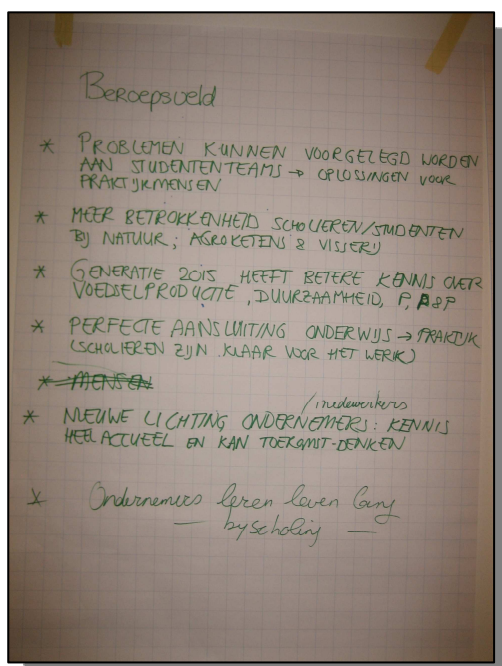 Beroepsveld
* PROBLEMEN KUNNEN VOORGELEGD WORDEN
AAN STUDENTENTEAMS → OPLOSSINGEN VOOR
PRAKTIJKMENSEN
* MEER BETROKKENHEID SCHOLIEREN/STUDENTEN
BIJ NATUUR, AGROKETENS & VISSERIJ
* GENERATIE 2015 HEEFT BETERE KENNIS OVER
VOEDSELPRODUCTIE, DUURZAAMHEID, P, P & P
* PERFECTE AANSLUITING ONDERWIJS → PRAKTIJK
(SCHOLIEREN ZIJN KLAAR VOOR HET WERK)
* MENSEN
/medewerkers
* NIEUWE LICHTING ONDERNEMERS: KENNIS
HEEL ACTUEEL EN KAN TOEKOMST-DENKEN
* Ondernemers leren leven lang
— byscholing —